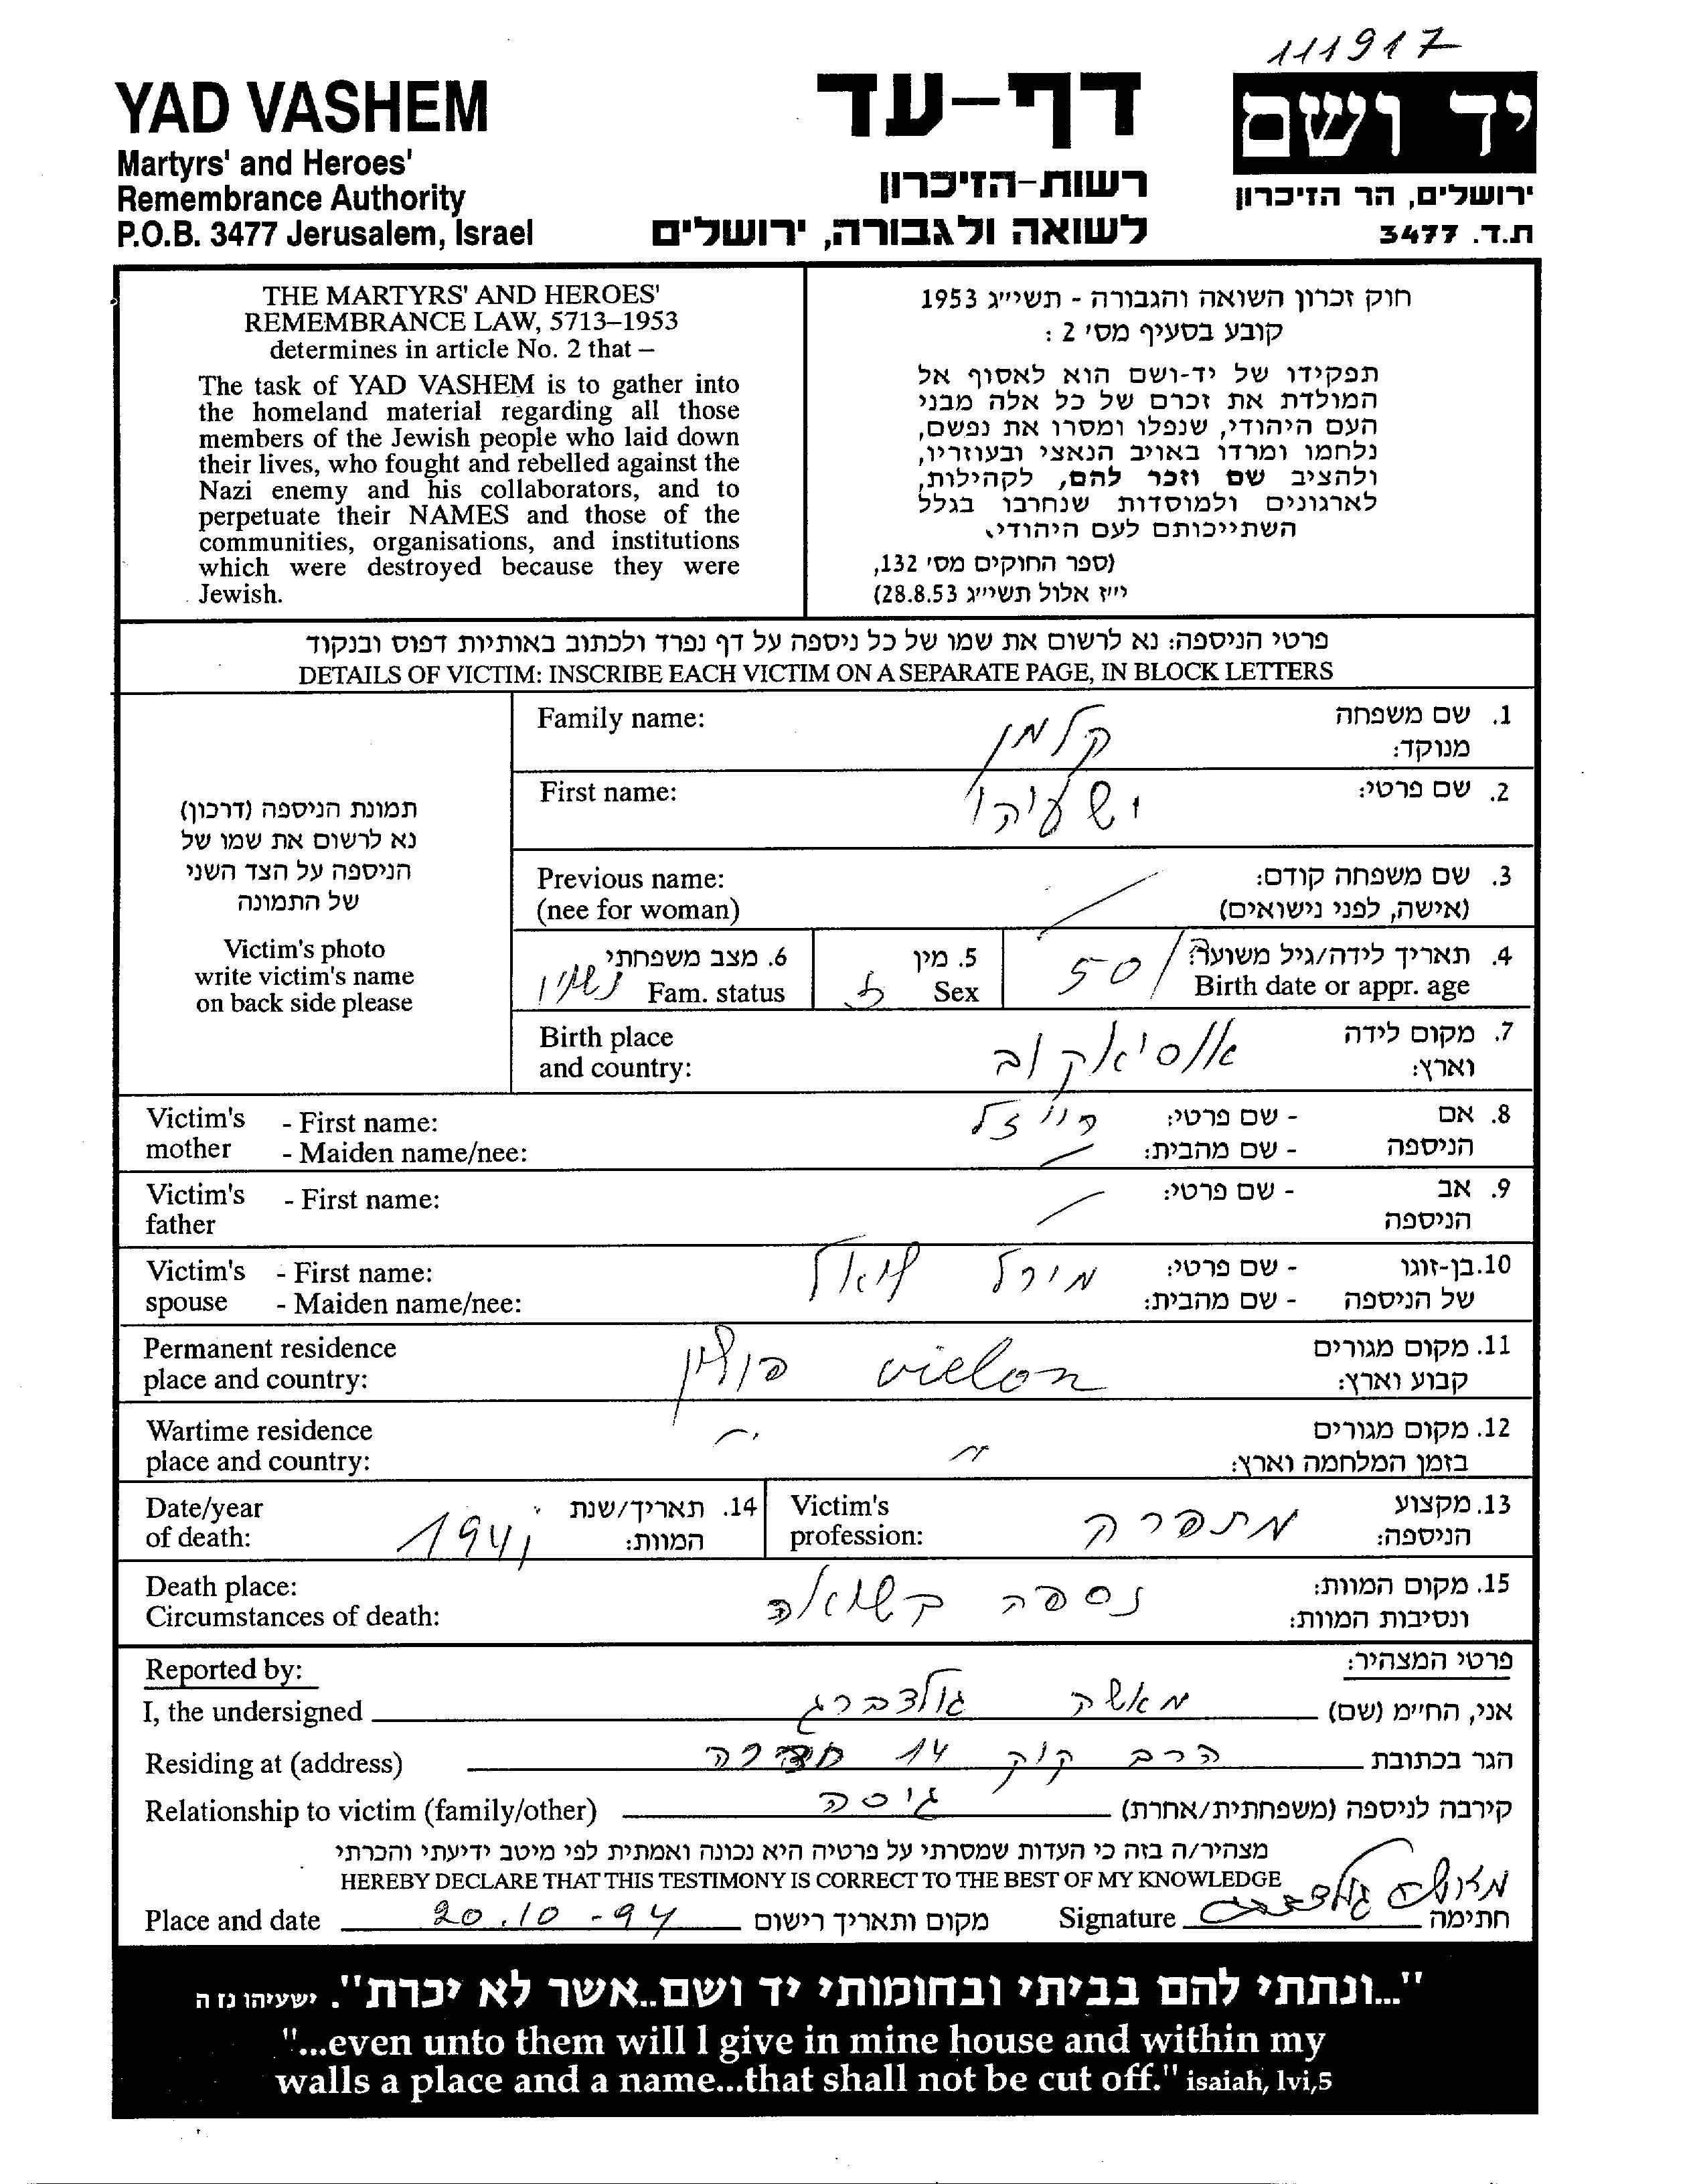 111917
YAD VASHEM
Martyrs' and Heroes'
Remembrance Authority
P.O.B. 3477 Jerusalem, Israel
דף-עד
רשות-הזיכרון
לשואה ולגבורה, ירושלים
יד ושם
ירושלים, הר הזיכרון
ת.ד. 3477
THE MARTYRS' AND HEROES'
REMEMBRANCE LAW, 5713–1953
determines in article No. 2 that –
The task of YAD VASHEM is to gather into
the homeland material regarding all those
members of the Jewish people who laid down
their lives, who fought and rebelled against the
Nazi enemy and his collaborators, and to
perpetuate their NAMES and those of the
communities, organisations, and institutions
which were destroyed because they were
Jewish.
חוק זכרון השואה והגבורה - תשי״ג 1953
קובע בסעיף מס' 2 :
תפקידו של יד-ושם הוא לאסוף אל
המולדת את זכרם של כל אלה מבני
העם היהודי, שנפלו ומסרו את נפשם,
נלחמו ומרדו באויב הנאצי ובעוזריו,
ולהציב שם וזכר להם, לקהילות,
לארגונים ולמוסדות שנחרבו בגלל
השתייכותם לעם היהודי.
(ספר החוקים מס' 132,
י״ז אלול תשי״ג 28.8.53)
פרטי הניספה: נא לרשום את שמו של כל ניספה על דף נפרד ולכתוב באותיות דפוס ובנקוד
DETAILS OF VICTIM: INSCRIBE EACH VICTIM ON A SEPARATE PAGE, IN BLOCK LETTERS
תמונת הניספה (דרכון)
נא לרשום את שמו של
הניספה על הצד השני
של התמונה
Victim's photo
write victim's name
on back side please
Family name: קלמן 1. שם משפחה
מנוקד:
First name: ישעיהו 2. שם פרטי:
Previous name: 3. שם משפחה קודם:
(nee for woman) (אישה, לפני נישואים)
6. מצב משפחתי נשוי 5. מין ז 50 4. תאריך לידה/גיל משוער:
Fam. status Sex Birth date or appr. age
Birth place 7. מקום לידה
and country: וארץ:
Victim's - First name: רייזל - שם פרטי: 8. אם
mother - Maiden name/nee: - שם מהבית: הניספה
Victim's - First name: - שם פרטי: 9. אב
father הניספה
Victim's - First name: מירל - שם פרטי: 10. בן-זוגו
spouse - Maiden name/nee: - שם מהבית: של הניספה
Permanent residence vielon פולין 11. מקום מגורים
place and country: קבוע וארץ:
Wartime residence 〃 〃 12. מקום מגורים
place and country: בזמן המלחמה וארץ:
Date/year 14. תאריך/שנת
of death: המוות:
Victim's מתפרה 13. מקצוע
profession: הניספה:
Death place: נספה בשואה 15. מקום המוות:
Circumstances of death: ונסיבות המוות:
Reported by: פרטי המצהיר:
I, the undersigned מאשה גולדברג אני, החי״מ (שם)
Residing at (address) הרב קוק 14 חדרה הגר בכתובת
Relationship to victim (family/other) גיסה קירבה לניספה (משפחתית/אחרת)
מצהיר/ה בזה כי העדות שמסרתי על פרטיה היא נכונה ואמתית לפי מיטב ידיעתי והכרתי
HEREBY DECLARE THAT THIS TESTIMONY IS CORRECT TO THE BEST OF MY KNOWLEDGE
Place and date 20.10-94 מקום ותאריך רישום Signature מאשה גולדברג חתימה
"...ונתתי להם בביתי ובחומותי יד ושם..אשר לא יכרת". ישעיהו נז ה
"...even unto them will I give in mine house and within my
walls a place and a name...that shall not be cut off." isaiah, lvi,5